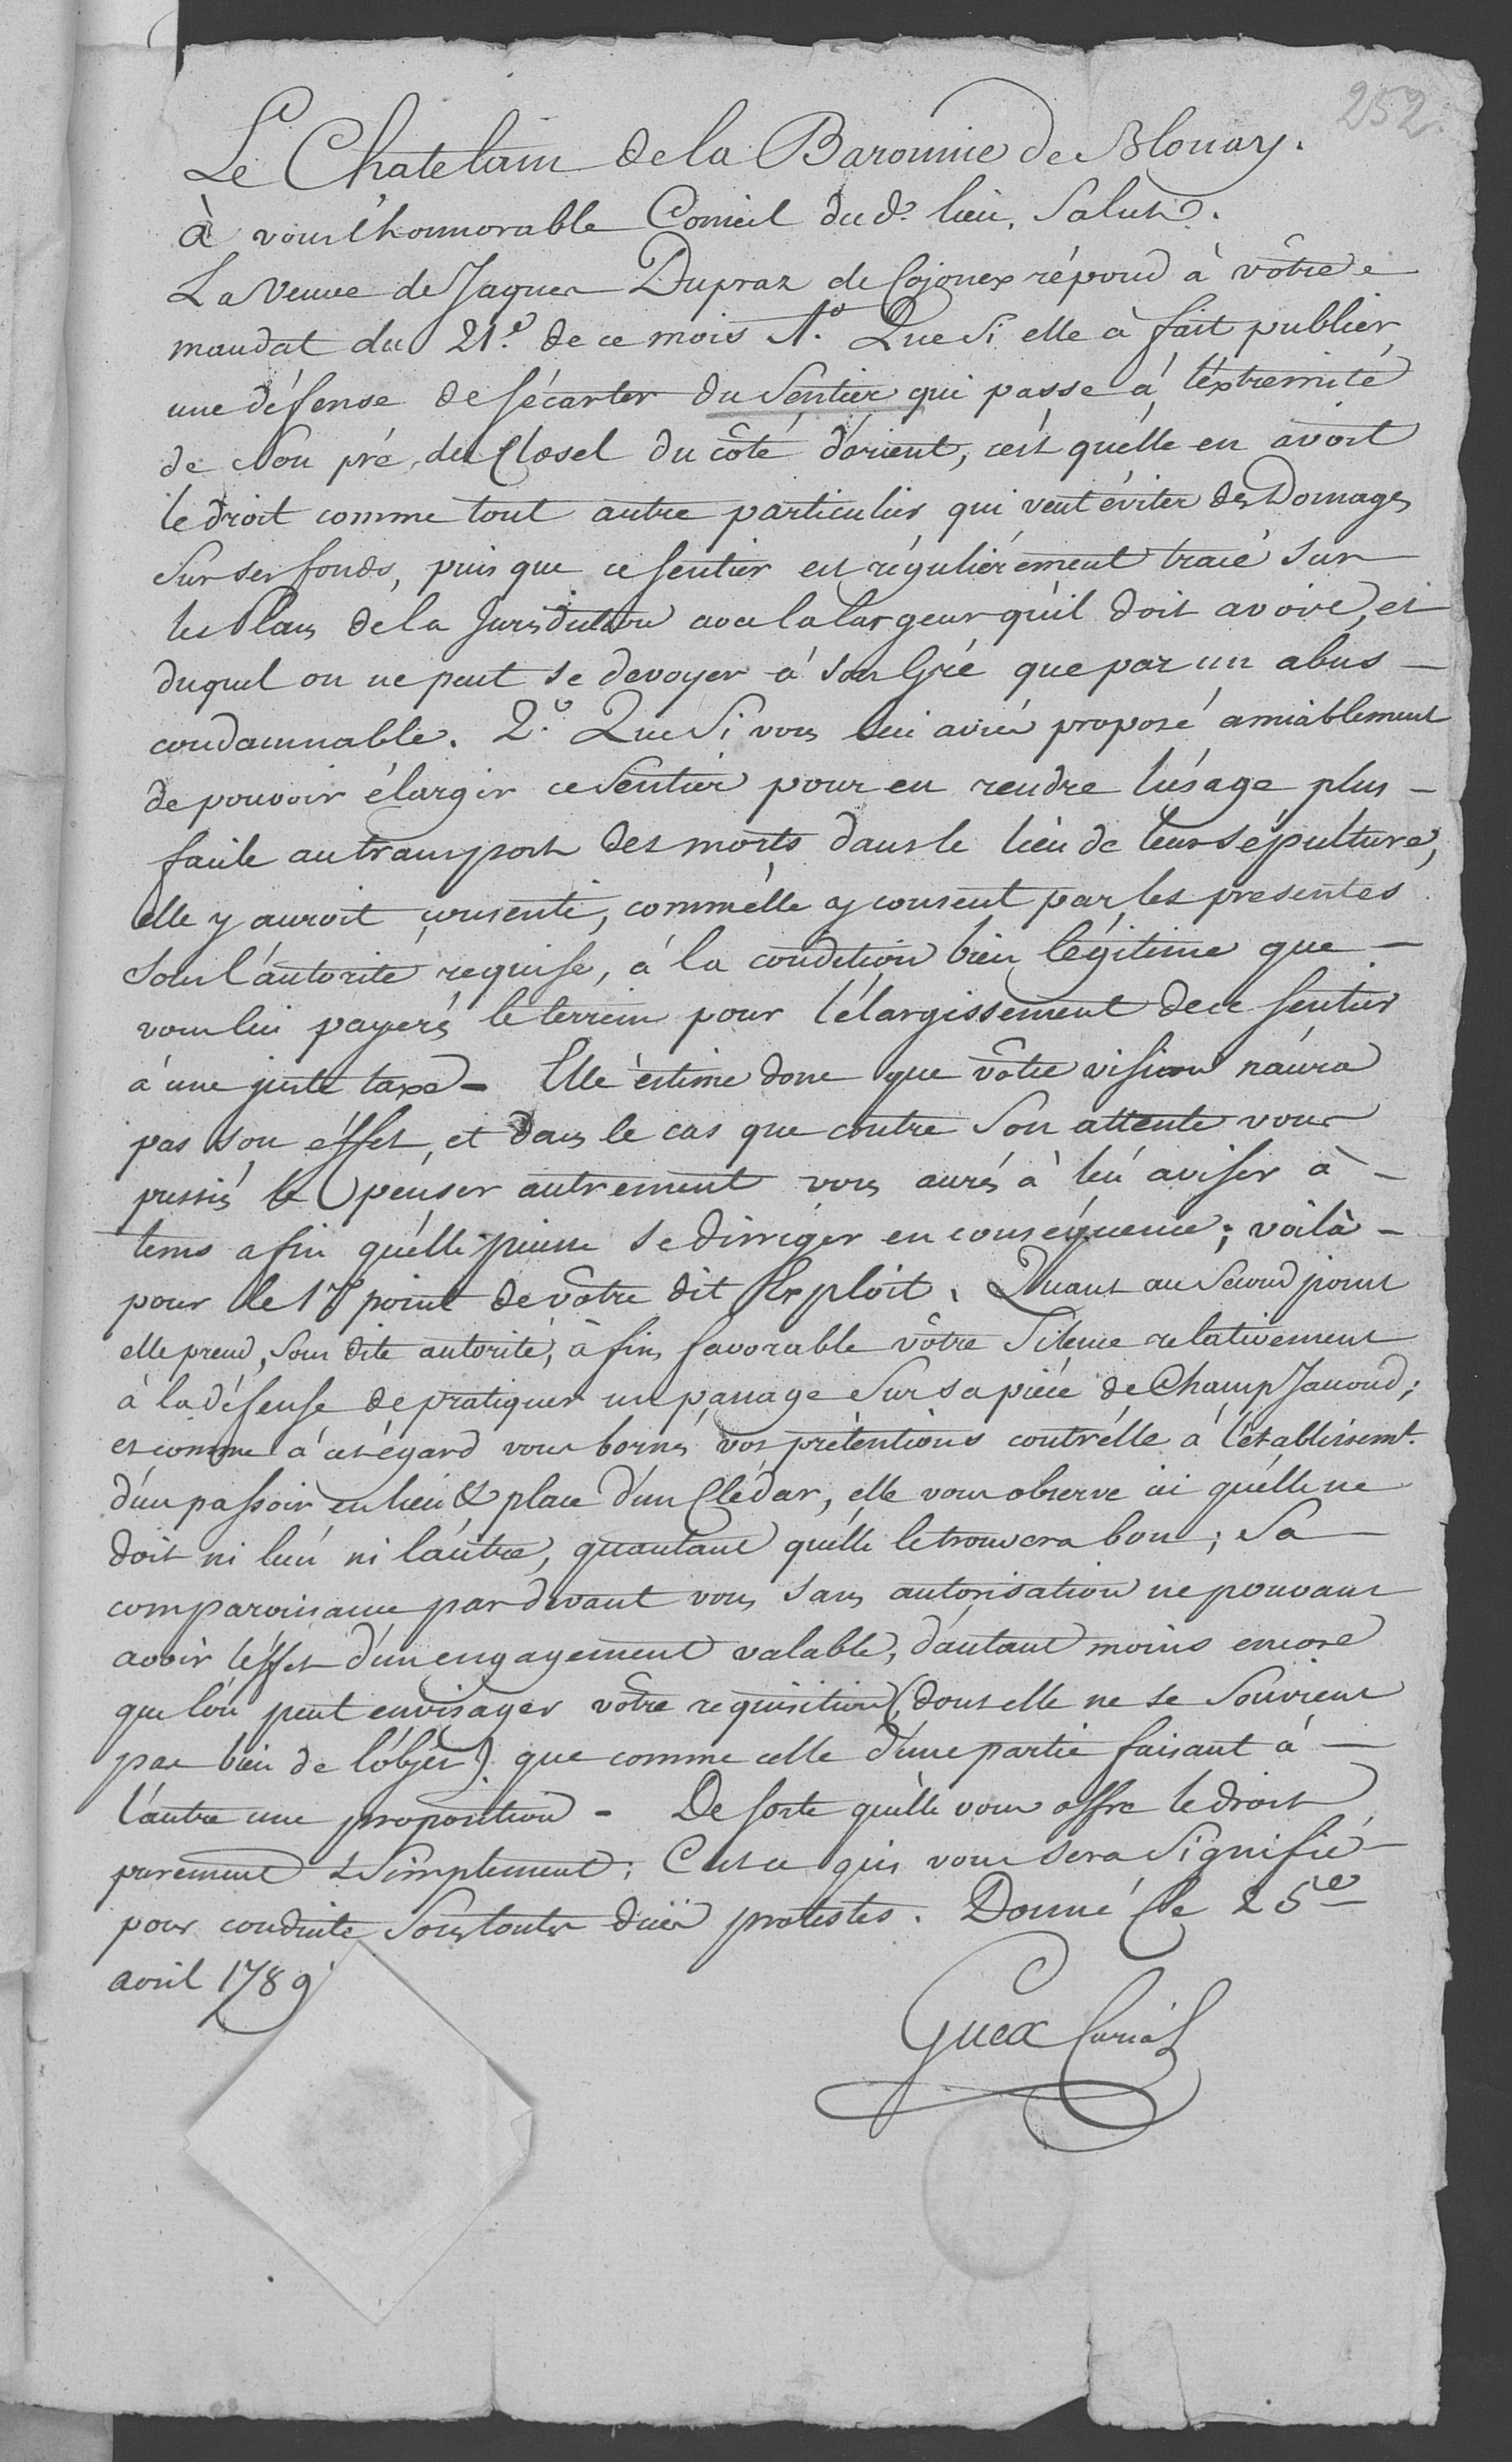 252.
Le Chatelain de la Baronnie de Blonay.
à vous l'honnorable Conseil dud.t lieu, Salut.
La Veuve de Jaques Dupraz de Cojonex répond à vôtre
mandat du 21.e de ce mois 1.o Que Si elle à fait publier
une défense de s'écarter du Sentier qui passe à l'éxtremité
de Son pré, du Closel du côté d'orient, c'est qu'elle en avoit
le droit comme tout autre particulier qui veut éviter des Domages
Sur ses fonds, puis que ce sentier est réguliérement tracé sur
les Plans de la Jurisdiction avec la largeur qu'il doit avoir, et
duquel on ne peut se devoyer à son Gré que par un abus
condamnable. 2.o Que Si vous lui aviés proposé amiablement
de pouvoir élargir ce Sentier pour en rendre l'usage plus
facile au transport des morts dans le lieu de leur sépulture,
elle y auroit consenti, comm'elle y consent par les presentes
Sous l'autorité requise, à la condition bien légitime que
vous lui payerés le terrein pour l'élargissement de ce sentier
à une juste taxe - Elle estime donc que vôtre vision n'aura
pas son éffet, et dans le cas que contre Son attente vous
pussiés le penser autrement vous aurés à l'en aviser à
tems afin qu'elle puisse se dirriger en conséquence; voilà
pour le 1.r point de vôtre dit Exploit. Quant au second point
elle prend, sous dite autorité, à fins favorable vôtre Silence relativement
à la défense de pratiquer un passage Sur sa pièce de Champ Janoud;
et comme à cet égard vous bornés vos prétentions contr'elle à l'établissemt.
d'un passoir en lieu & place d'un Clédar, elle vous observe ici qu'elle ne
doit ni l'un ni l'autre, qu'autant qu'elle le trouvera bon; Sa
comparoissance pardevant vous sans autorisation ne pouvant
avoir l'éffet d'un engagement valable, d'autant moins encore
que l'on peut envisager vôtre requisition (dont elle ne se Souvient
pas bien de l'objet) que comme celle d'une partie faisant à
l'autre une proposition - De sorte qu'elle vous offre le droit
purement & simplement; C'est ce qui vous sera Signifié
pour conduite Sous toutes dües protestes. Donné le 25.e
avril 1789
Guex Curial